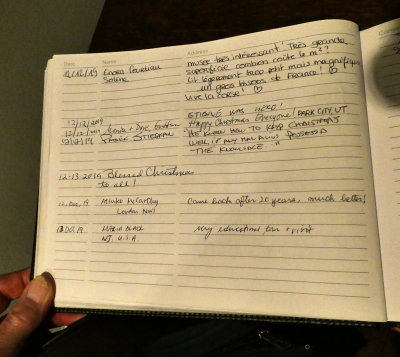 Date Name Address
12/12/19 musée très intéressant! Très grande
Solène superficie combien coûte le m²?
Lit légèrement trop petit mais magnifique
un gros bisous de France! ♡
Vive la Corse! ♡
12/12/2019 ETIENNE WAS HERE!
12/12/2019 Happy Christmas Everyone! PARK CITY UT
"HE KNEW HOW TO KEEP CHRISTMAS
WELL, IF ANY MAN ALIVE POSSESSED
THE KNOWLEDGE."
12-13-2019 Blessed Christmas
to all!
12, Dec, 19 McCarthy Came back after 20 years, much better!
London
13 Dec 19 MARIA BLACK Very educational fun visit
NJ, U.S.A